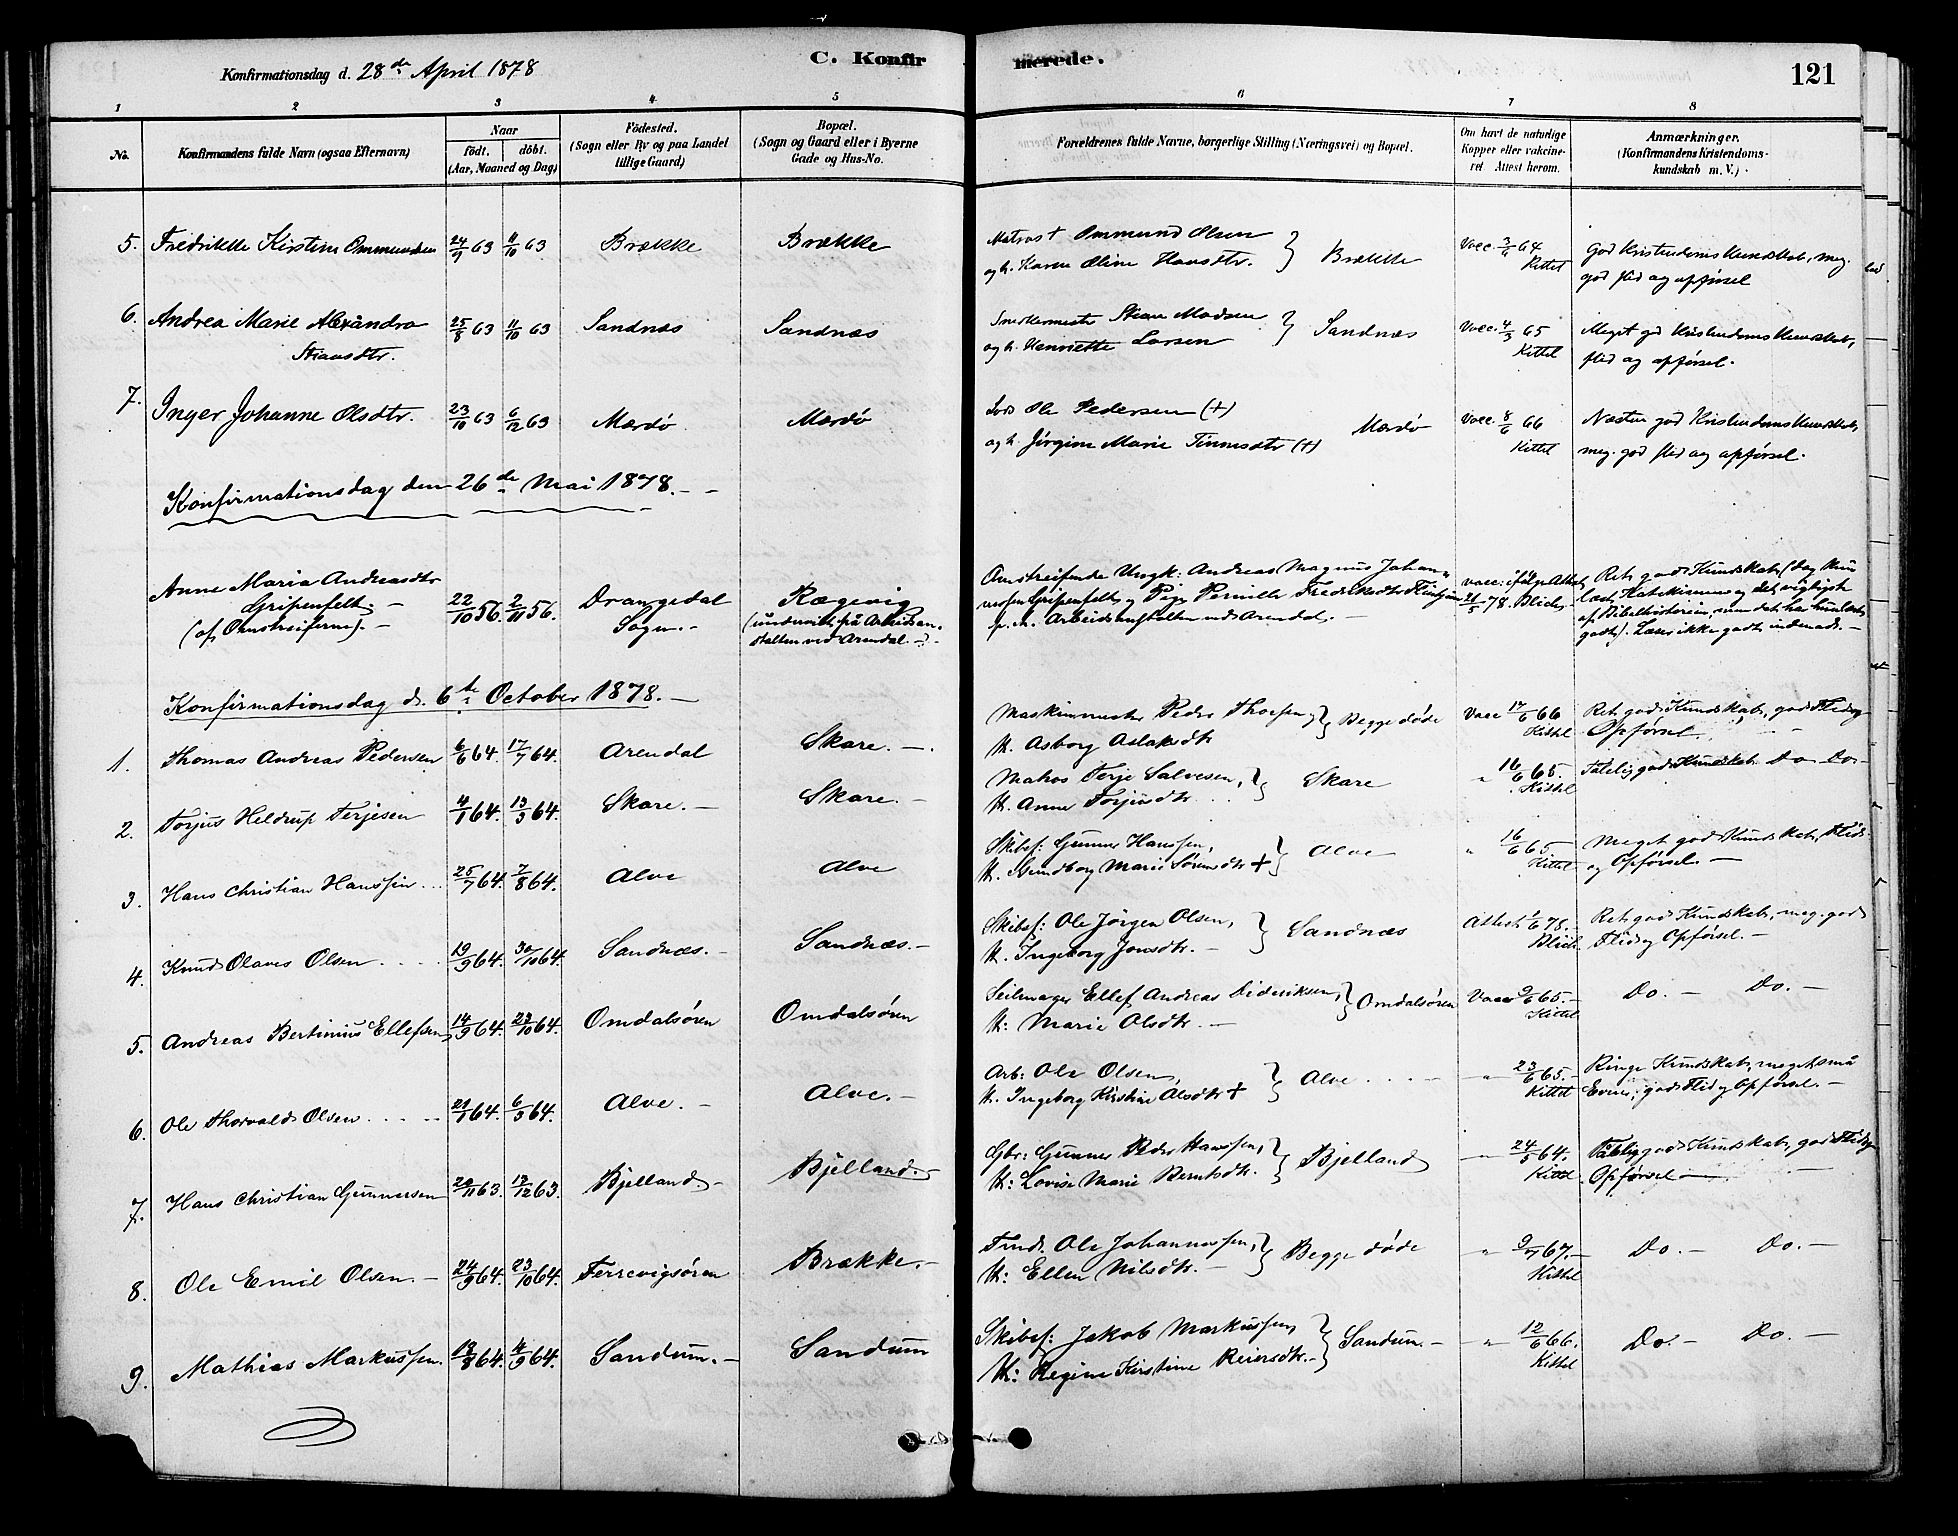 Konfirmationsdag d. 28de April 1878
C. Konfirmerede.
121
1 2 3 4 5 6 7 8
No.
Konfirmandens fulde Navn (ogsaa Efternavn)
Naar
födt. döbt.
(Aar, Maaned og Dag)
Födested.
(Sogn eller By og paa Landet
tillige Gaard)
Bopæl.
(Sogn og Gaard eller i Byerne
Gade og Hus-No.
Forældrenes fulde Navne, borgerlige Stilling (Næringsvei) og Bopæl.
Om havt de naturlige
Kopper eller vakcine-
ret. Attest herom.
Anmærkninger.
(Konfirmandens Kristendoms-
kundskab m. V.)
5. Fredrikke Kirstine Ommundsen 24/9 63 11/10 63 Brække Brække
Matros † Ommund Olsen
og h. Karen Oline Hansdtr. } Brække
Vacc. 3/6 64
Kittel
God Kristendomskundskab, meg.
god flid og opførsel
6. Andrea Marie Alexandra
Stiansdtr.
25/8 63 11/10 63 Sandnæs Sandnæs
Snerkermester Stian Madsen
og h. Henriette Larsen } Sandnæs
Vacc. 4/3 65
Kittel
Meget god Kristendomskundskab,
flid og opførsel.
7. Inger Johanne Olsdtr. 23/10 63 6/12 63 Mærdø Mærdø
Lods Ole Pedersen (+)
og h. Jørgine Marie Tinnesdtr (+) Mærdø
Vacc. 8/6 66
Kittel
Næsten god Kristendomskundskab,
meg. god flid og opførsel.
Konfirmationsdag den 26de Mai 1878.
Anne Maria Andreasdtr
Gripenfelt
(af Omstreiferne).
22/10 56. 2/11 56.
Drangedal
Sogn.
Rægevig
(underviist på Arbeidsan-
stalten ved Arendal
Omstreifende Ungk: Andreas Magnus Johan-
nesen Gripenfelt og Pige Pernille Fredriksdtr
p. n. Arbeidsanstalten ved Arendal.
vacc: ifølge Attest
21/5 78. Blich
Ret god Kundskab (dog kun
læst Katekismus og det vigtigste
af Bibelhistorien, men det har hun lært
godt). Læser ikke godt indenad.
Konfirmationsdag d. 6te October 1878.
1. Thomas Andreas Pedersen 6/6 64. 17/7 64. Arendal Skare.
Maskinmester Peder Thorsen
K. Asborg Aslaksdtr } Begge døde
Vacc 17/6 66
Kittel
Ret god Kundskab, god Flid og
Opførsel
2. Torjus Heldrup Terjesen 4/1 64. 13/3 64. Skare. Skare.
Matros Terje Salvesen,
K. Anne Torjusdtr } Skare
" 16/6 65.
Kittel
Talelig god Kundskab. Do Do.
3. Hans Christian Hanssen 25/7 64. 7/8 64. Alve Alve
Skibsf: Gunner Hanssen,
K. Gundborg Marie Sørensdtr + } Alve
" 16/6 65.
Kittel
Meget god Kundskab, Flid
og Opførsel.
4. Knud Olaves Olsen 19/9 64. 30/10 64. Sandnæs. Sandnæs.
Skibsf: Ole Jørgen Olsen,
K. Ingeborg Jonsdtr. } Sandnæs
Attest 1/6 78.
Blich.
Ret god Kundskab, meg. god
Flid og Opførsel.
5. Andreas Bertinius Ellefsen 14/9 64. 23/10 64. Omdalsören Omdalsören
Seilmager Ellef Andreas Dideriksen,
K: Marie Olsdtr. } Omdalsören
Vacc 9/6 65.
Kittel
Do. Do.
6. Ole Thorvald Olsen 21/1 64. 6/3 64. Alve. Alve.
Arb: Ole Olsen,
K. Ingeborg Kirstine Olsdtr + } Alve
" 23/6 65.
Kittel
Ringe Kundskab, meget små
Evner, god Flid og Opførsel.
7. Hans Christian Gunnersen 20/11 63. 13/12 63. Bjelland. Bjelland.
Gbr: Gunner Peder Hanssen,
K: Lovise Marie Berntsdtr. } Bjelland
" 24/5 64.
Kittel
Tålelig god Kundskab, god Flid og
Opførsel
8. Ole Emil Olsen. 24/9 64. 23/10 64. Ferrevigsören Brække.
Tind. Ole Johannessen,
K: Ellen Nilsdtr. } Begge døde
" 9/7 67.
Kittel
Do. Do.
9. Mathias Markussen. 18/8 64. 4/9 64. Sandum. Sandum
Skibsf: Jakob Markussen,
K: Regine Kirstine Reiersdtr. } Sandum.
" 12/6 66.
Kittel
Do. Do.